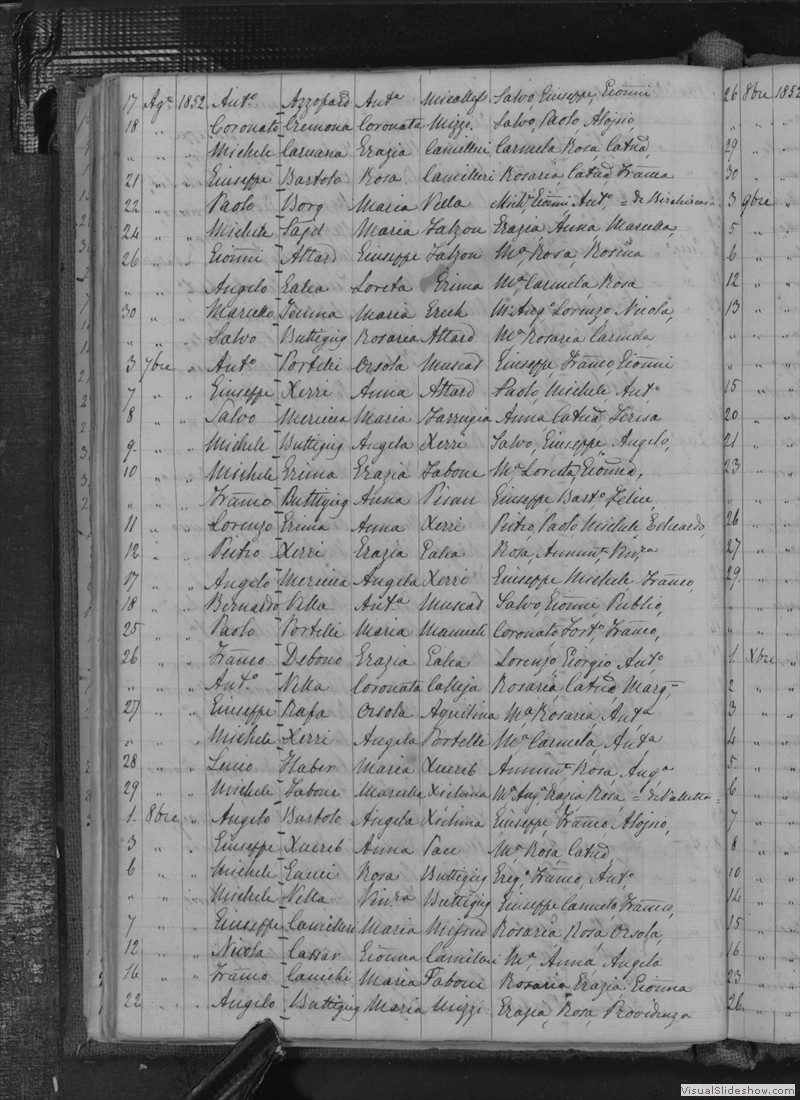 17 Agto 1852 Anto Azzopard Anta Micallef Salvo, Giuseppe, Gionni
18 " " Coronato Cremona Coronata Mizzi Salvo, Paolo, Alojso
" " " Michele Caruana Grazia Camilleri Carmela Rosa, Catna
21 " " Giuseppe Bartolo Rosa Camilleri Rosaria, Catna, Franca
22 " " Paolo Borg Maria Vella Gionni, Anto
24 " " Michele Sajd Maria Falzon Grazia Anna Mariella
26 " " Gionni Attard Giuseppe Falzon Ma Rosa, Rosina
" " Angelo Galea Loreta Grima Ma Carmela, Rosa
30 " " Marcello Maria Grech Ma Anga Lorenzo, Nicola,
" " " Salvo Buttigieg Rosaria Attard Ma Rosaria Carmela
3 7bre " Anto Portelli Orsola Muscat Giuseppe, Franco, Gionni
7 " " Giuseppe Xerri Anna Attard Paolo, Michele, Anto
8 " " Salvo Mercieca Maria Farrugia Anna Catna, Teresa
9 " " Michele Buttigieg Angela Xerri Salvo, Giuseppe Angelo,
10 " " Michele Grima Grazia Tabone Ma Loreta, Gionna,
" " " Franco Buttigieg Anna Pisan Giuseppe Barto Felice,
11 " " Lorenzo Grima Anna Xerri Pietro, Paolo, Michele, Eduardo,
12 " " Pietro Xerri Grazia Galea Rosa, Annunta, Vinza
17 " " Angelo Mercieca Angela Xerri Giuseppe Michele Franco,
18 " " Bernardo Vella Anta Muscat Salvo, Gionni, Publio,
25 " " Paolo Portelli Maria Mamueli Coronato, Forto, Franco,
26 " " Franco Debono Grazia Galea Lorenzo, Giorgio, Anto
" " " Anto Vella Coronata Calleja Rosaria, Catna, Marga
27 " " Giuseppe Rapa Orsola Aquilina Ma Rosaria, Anta
" " " Michele Xerri Angela Portelli Ma Carmela, Anta
28 " " Luca Haber Maria Xuereb Annunta Rosa, Anga
29 " " Michele Tabone Marcella Xichina Ma Anga, Grazia, Rosa
1 8bre " Angelo Bartolo Angela Xichina Giuseppe, Franco, Alojso,
3 " " Giuseppe Xuereb Anna Pace Ma Rosa, Catna,
6 " " Michele Gauci Rosa Buttigieg Grego, Franco, Anto
" " " Michele Vella Vinza Buttigieg Giuseppe Carmelo, Franco,
7 " " Giuseppe Camilleri Maria Mifsud Rosaria Rosa, Orsola,
12 " " Nicola Cassar Gionna Camilleri Ma, Anna, Angela
16 " " Franco Maria Tabone Rosaria Grazia Gionna
22 " " Angelo Buttigieg Maria Mizzi Grazia, Rosa, Providenza
26 8bre 1852
" " "
29 " "
30 " "
3 9bre "
5 " "
6 " "
12 " "
13 " "
" " "
15 " "
20 " "
21 " "
23 " "
" " "
26 " "
27 " "
29 " "
" " "
1 Xbre "
2 " "
3 " "
4 " "
5 " "
6 " "
7 " "
8 " "
10 " "
14 " "
15 " "
16 " "
23 " "
26 " "
VisualSlideshow.com